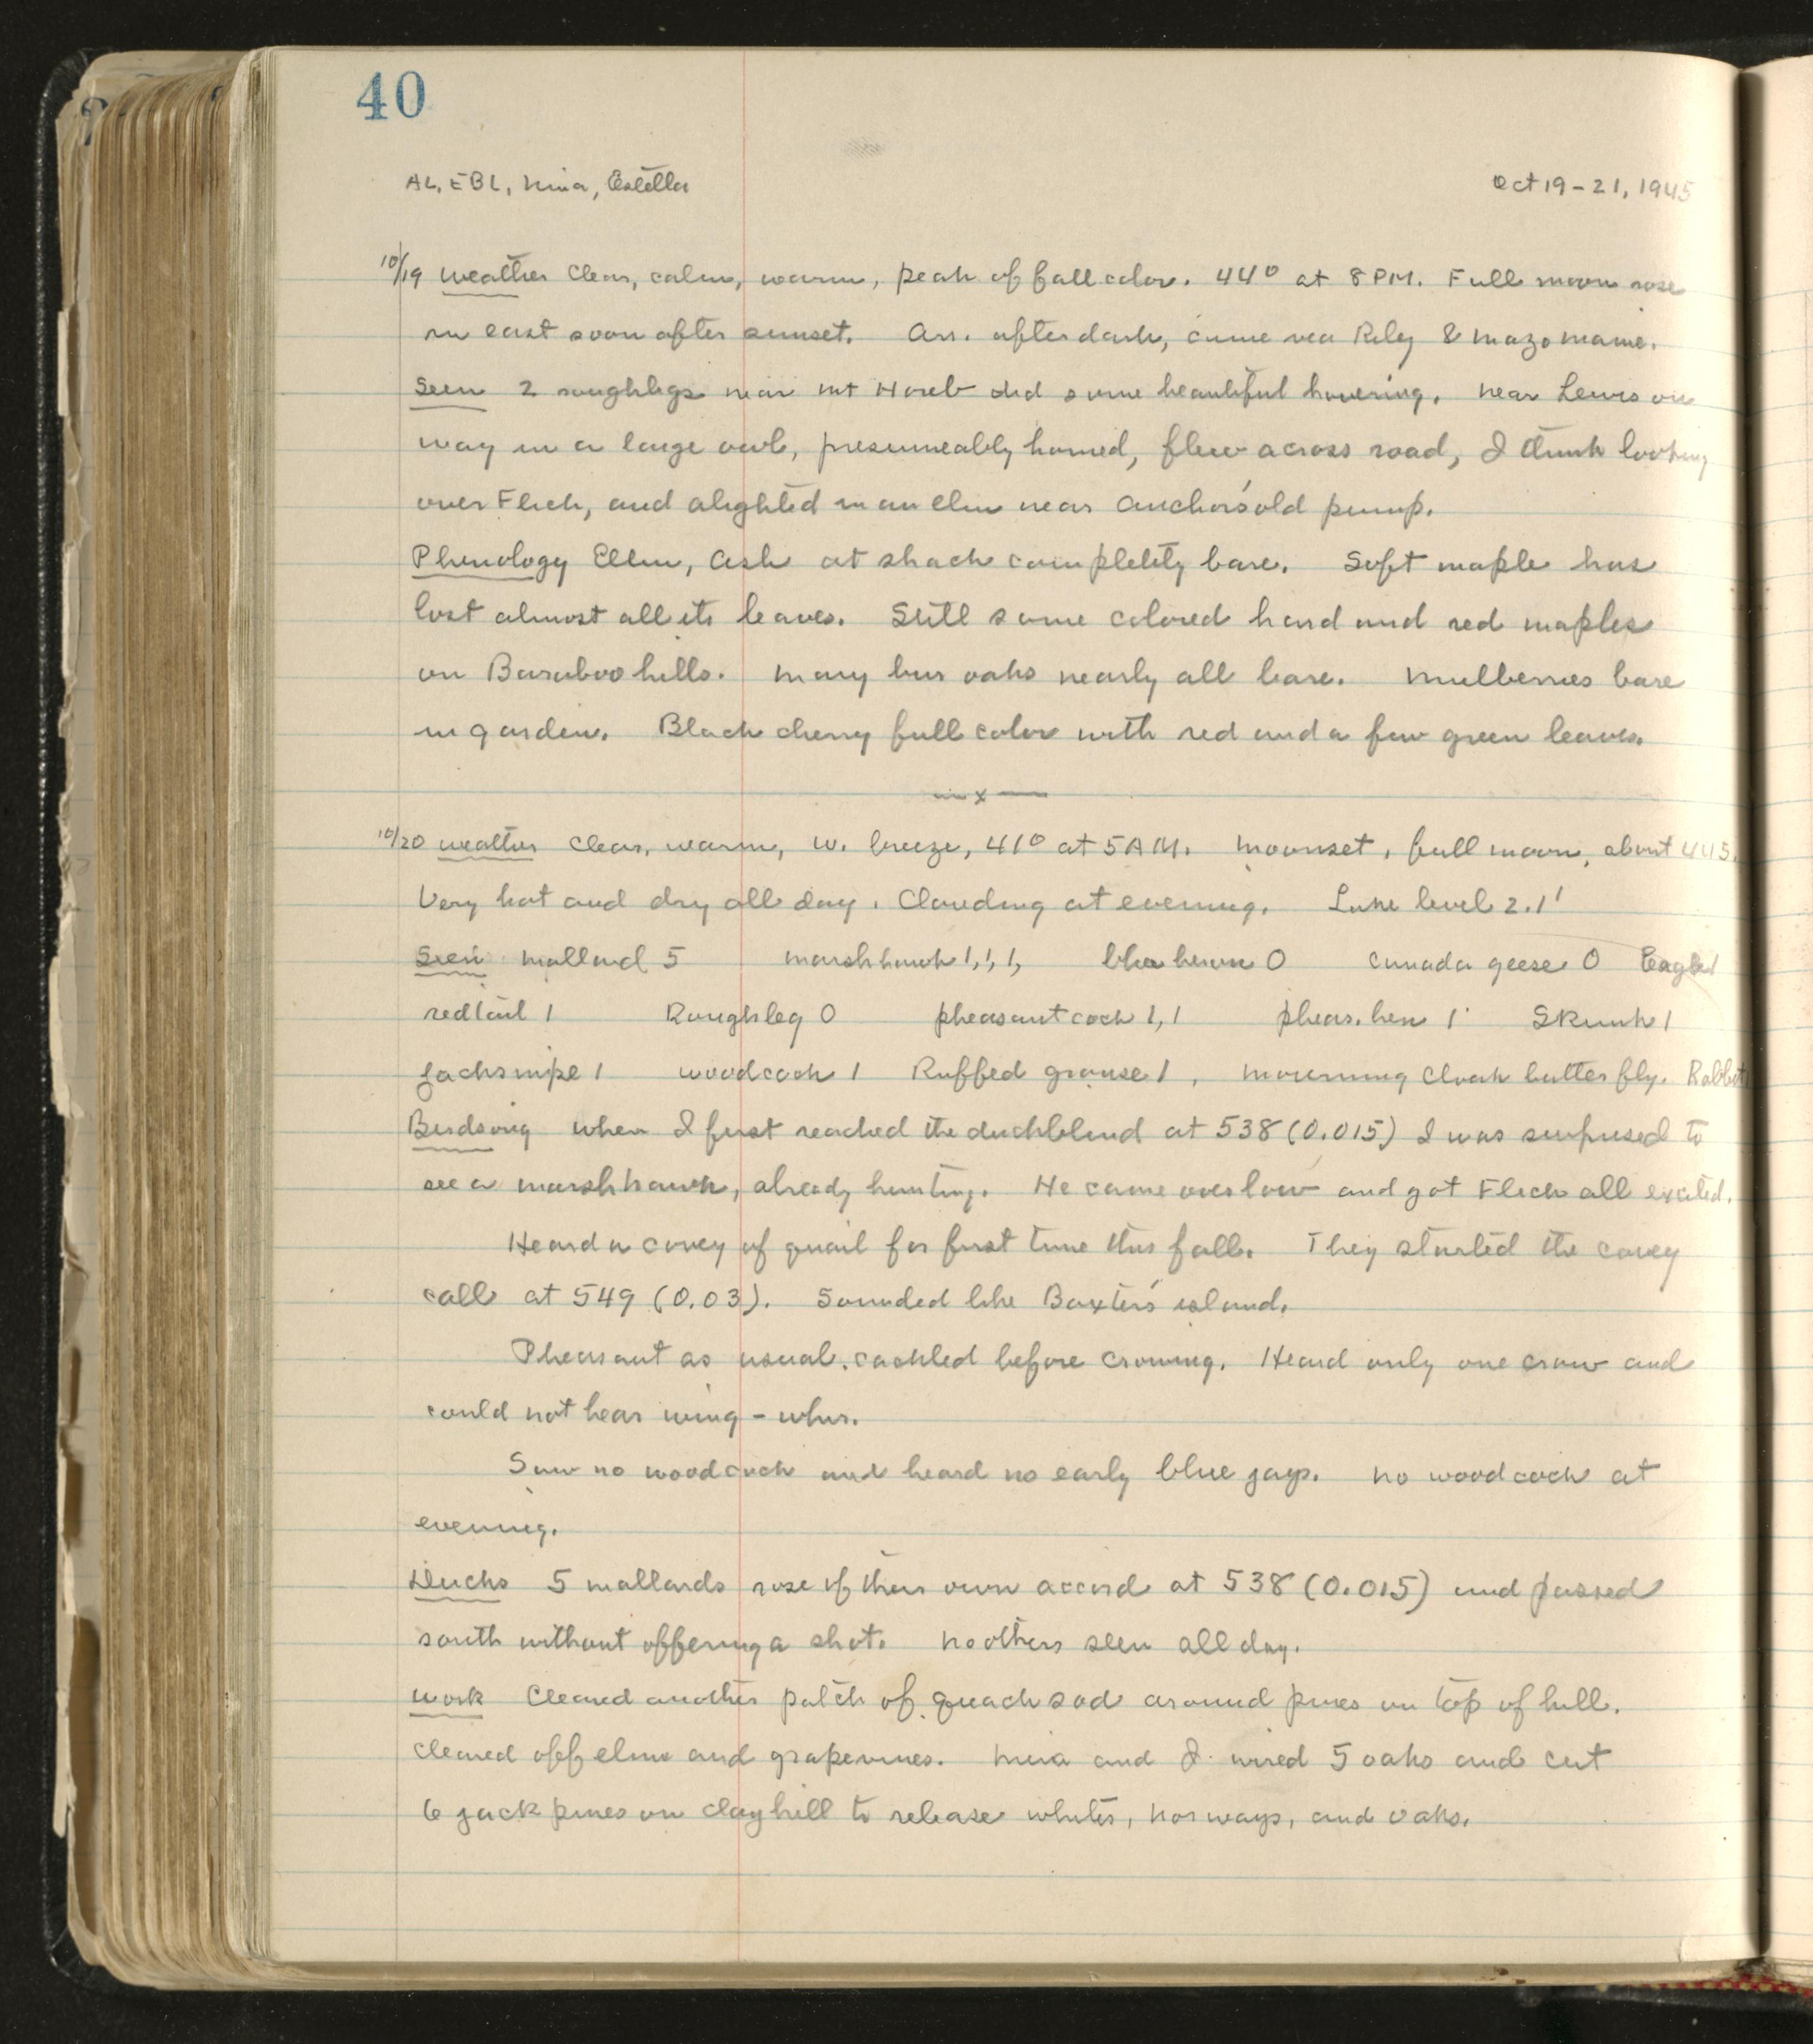 40
AL, EBL, Nina, Estella Oct 19-21, 1945
10/19 Weather Clear, calm, warm, peak of fall color. 44° at 8 PM. Full moon rose
in east soon after sunset. Arr. after dark, came via Riley & Mazomanie.
Seen 2 roughlegs near Mt Horeb did some beautiful hovering. Near Lewis on
way in a large owl, presumeably horned, flew across road, I think looking
over Flick, and alighted in an elm near Anchor's old pump.
Phenology Elm, Ash at shack completely bare. Soft maple has
lost almost all its leaves. Still some colored hard and red maples
on Baraboo hills. Many bur oaks nearly all bare. Mulberries bare
in garden. Black cherry full color with red and a few green leaves.
— x —
10/20 Weather Clear, warm, W. breeze, 41° at 5 AM. Moonset, full moon, about 445.
Very hot and dry all day. Clouding at evening. Lake level 2.1'
Seen mallard 5 marsh hawk 1, 1, 1, blue heron 0 Canada geese 0 Eagle 1
redtail 1 Roughleg 0 pheasant cock 1, 1 pheas. hen 1 Skunk 1
Jacksnipe 1 woodcock 1 Ruffed grouse 1, Mourning cloak butterfly. Rabbit
Birdsong When I first reached the duckblind at 538 (0.015) I was surprised to
see a marsh hawk, already hunting. He came over low and got Flick all excited.
Heard a covey of quail for first time this fall. They started the covey
call at 549 (0.03). Sounded like Baxter's island.
Pheasant as usual, cackled before crowing. Heard only one crow and
could not hear wing-whir.
Saw no woodcock and heard no early blue jays. No woodcock at
evening.
Ducks 5 mallards rose of their own accord at 538 (0.015) and passed
south without offering a shot. No others seen all day.
Work Cleared another patch of quack sod around pines on top of hill.
Cleared off elms and grapevines. Nina and I wired 5 oaks and cut
6 jack pines on clay hill to release whites, Norways, and oaks.